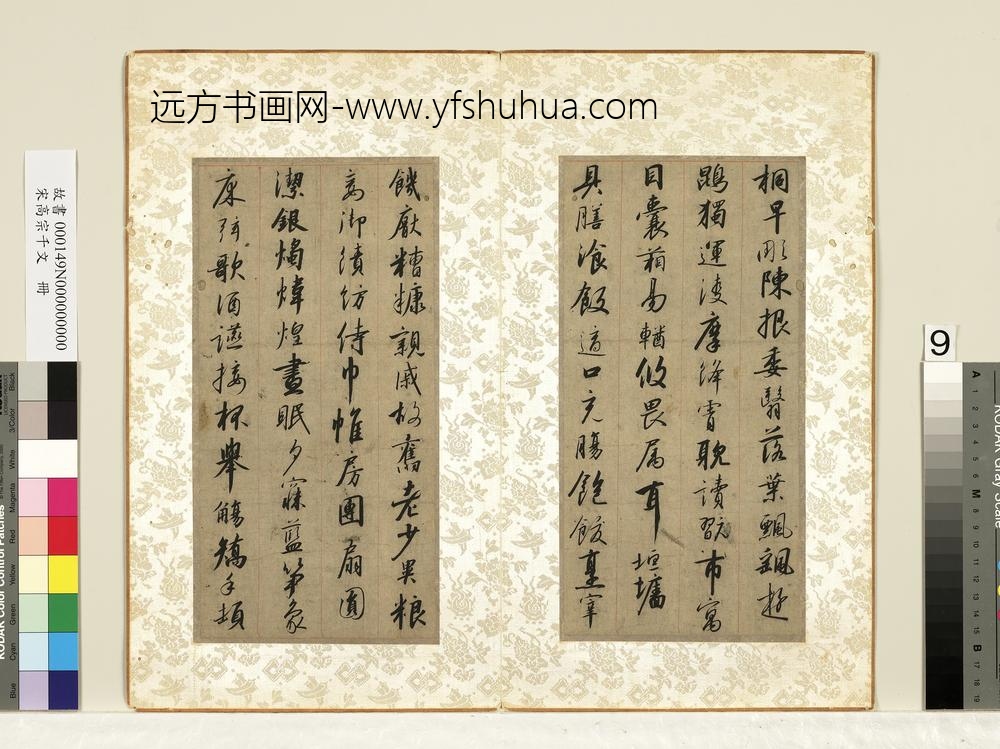 远方书画网-www.yfshuhua.com
桐早彫陳根委翳落葉飄颻遊
鵾獨運凌摩絳霄耽讀翫市寓
目囊箱易輶攸畏属耳垣墻
具膳飡飯適口充腸飽飫烹宰
饑厭糟糠親戚故舊老少異粮
妾御績紡侍巾帷房團扇圓
潔銀燭煒煌晝眠夕寐藍笋象
床弦歌酒讌接杯舉觴矯手頓
故書 000149N000000000
宋高宗千文 冊
9
KODAK Color Control Patches
Blue
Cyan
Green
Yellow
Red
Magenta
White
3/Color
Black
KODAK Gray Scale
A 1 2 3 4 5 6 M 8 9 10 11 12 13 14 15 B 17 18 19